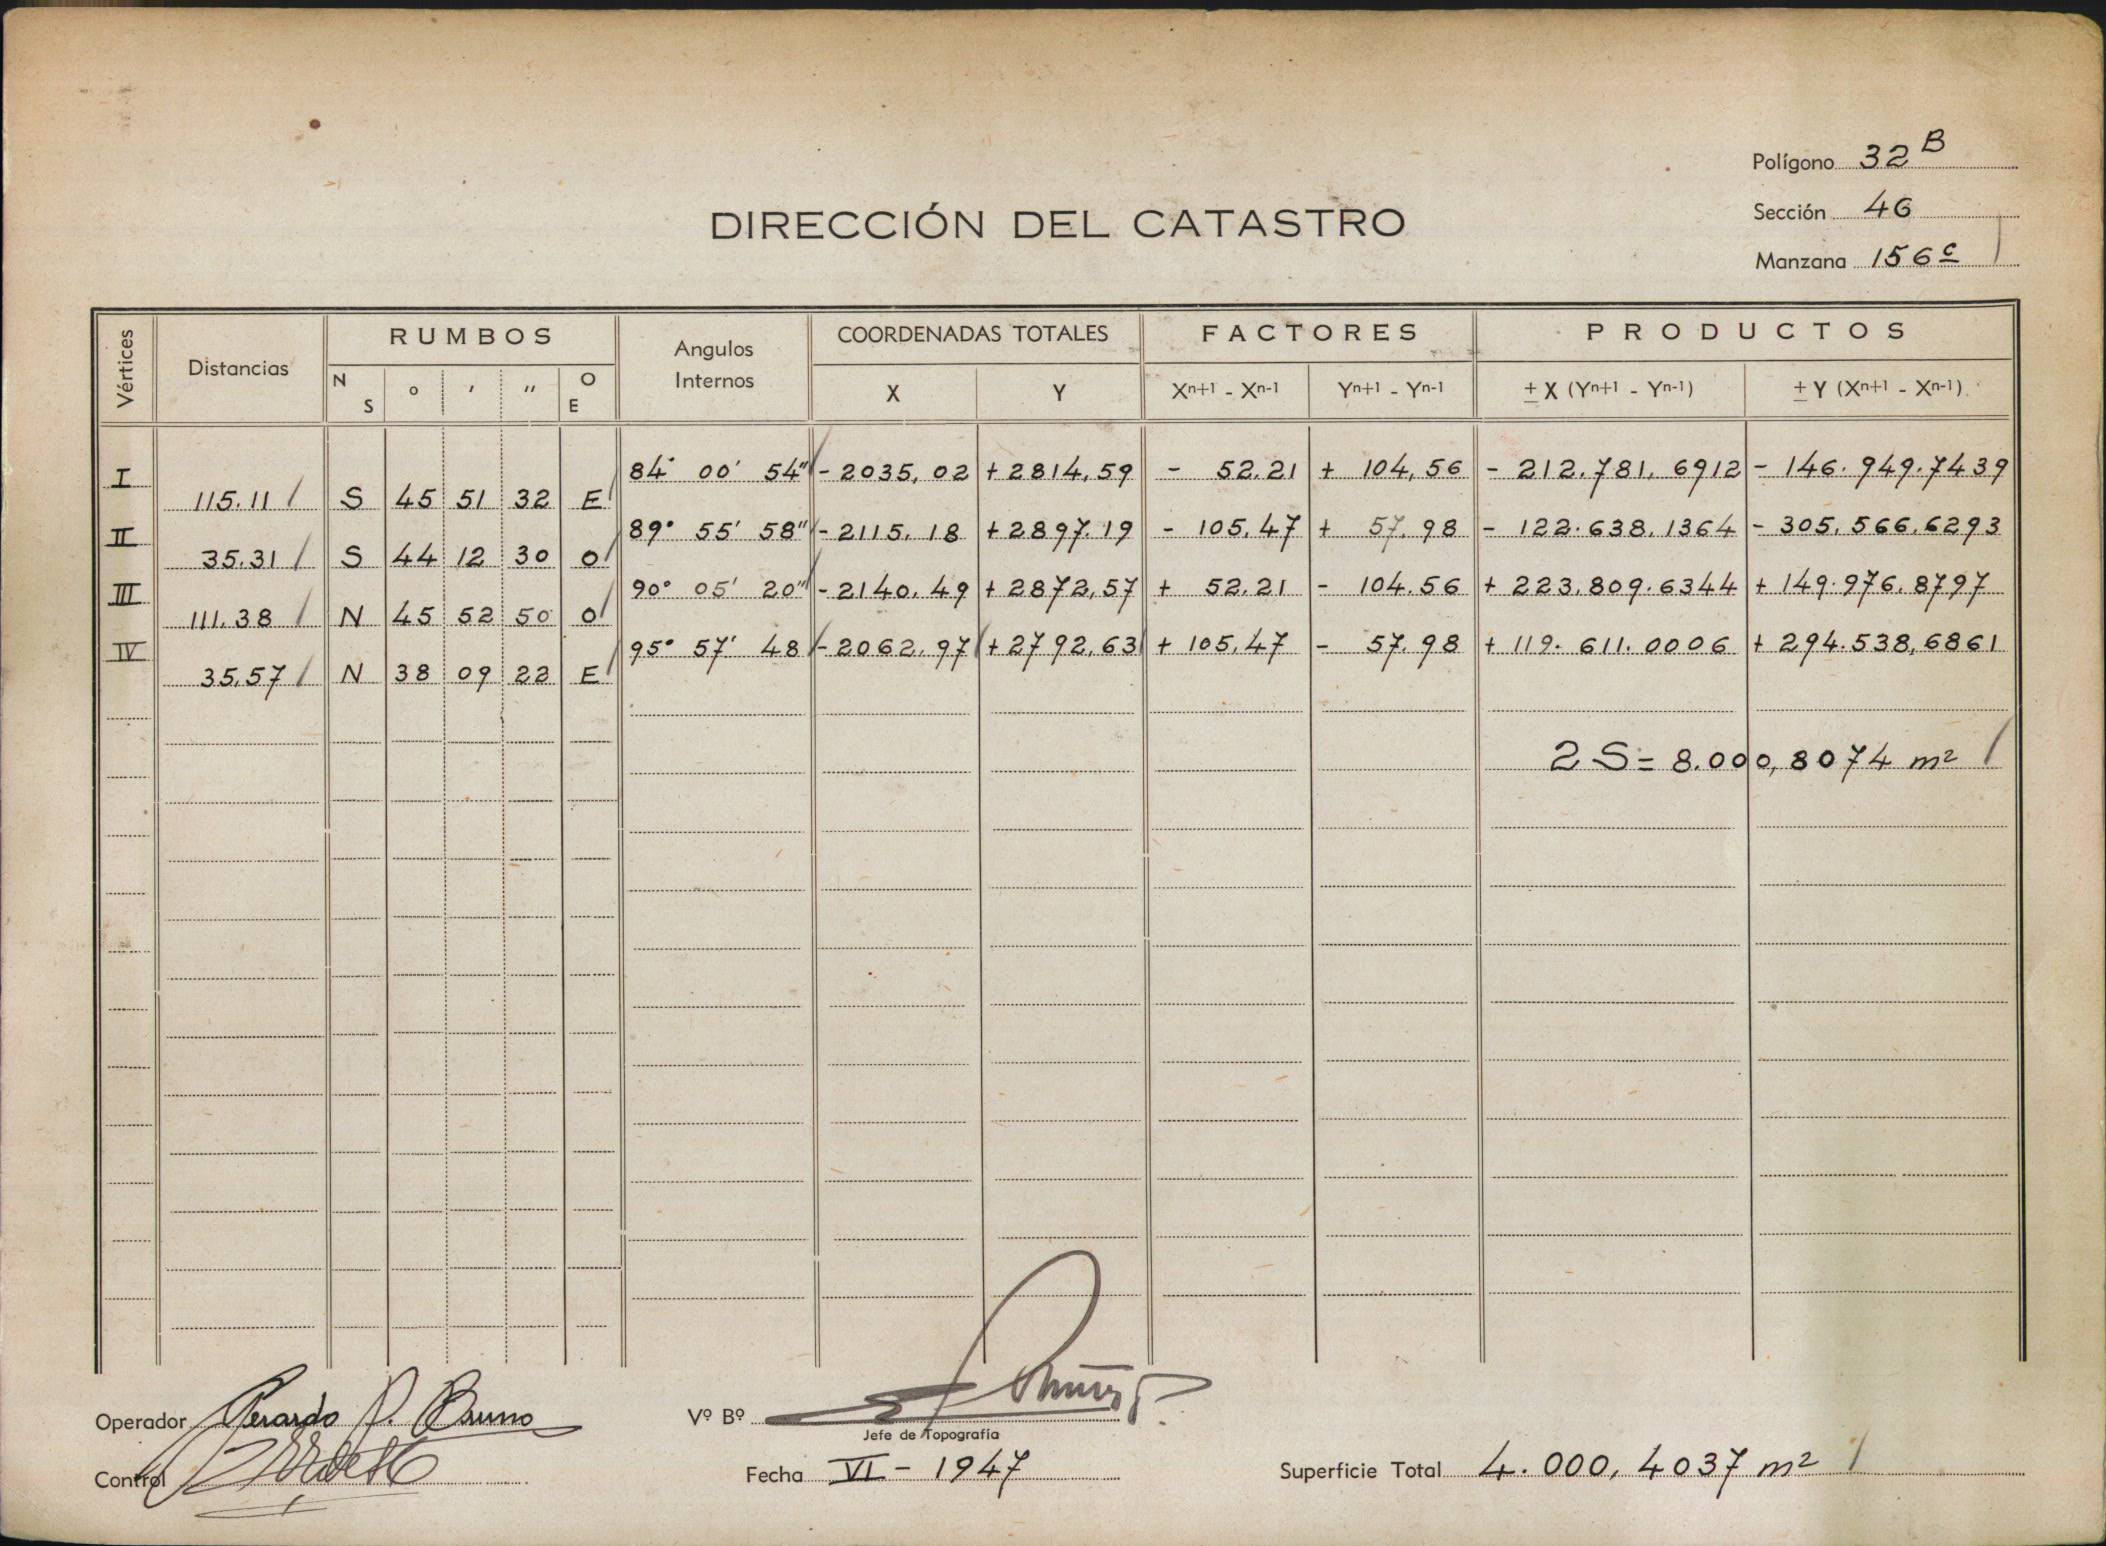 Polígono 32 B
Sección 46
Manzana 156 c
DIRECCIÓN DEL CATASTRO
Vértices Distancias RUMBOS Angulos Internos COORDENADAS TOTALES FACTORES PRODUCTOS
N S ° ' " O E X Y Xn+1 - Xn-1 Yn+1 - Yn-1 ± X (Yn+1 - Yn-1) ± Y (Xn+1 - Xn-1)
I 84° 00' 54" - 2035,02 + 2814,59 - 52.21 + 104,56 - 212.781,6912 - 146.949.7439
115.11 S 45 51 32 E
II 89° 55' 58" - 2115.18 + 2897.19 - 105,47 + 57.98 - 122.638,1364 - 305,566,6293
35.31 S 44 12 30 O
III 90° 05' 20" - 2140.49 + 2872,57 + 52.21 - 104.56 + 223.809.6344 + 149.976.8797
111.38 N 45 52 50 O
IV 95° 57' 48 - 2062.97 + 2792,63 + 105,47 - 57.98 + 119.611.0006 + 294.538,6861
35,57 N 38 09 22 E
2 S = 8.000,8074 m²
Operador Gerardo P. Bruno
Vº Bº
Jefe de Topografia
Control
Fecha VI - 1947
Superficie Total 4.000,4037 m²